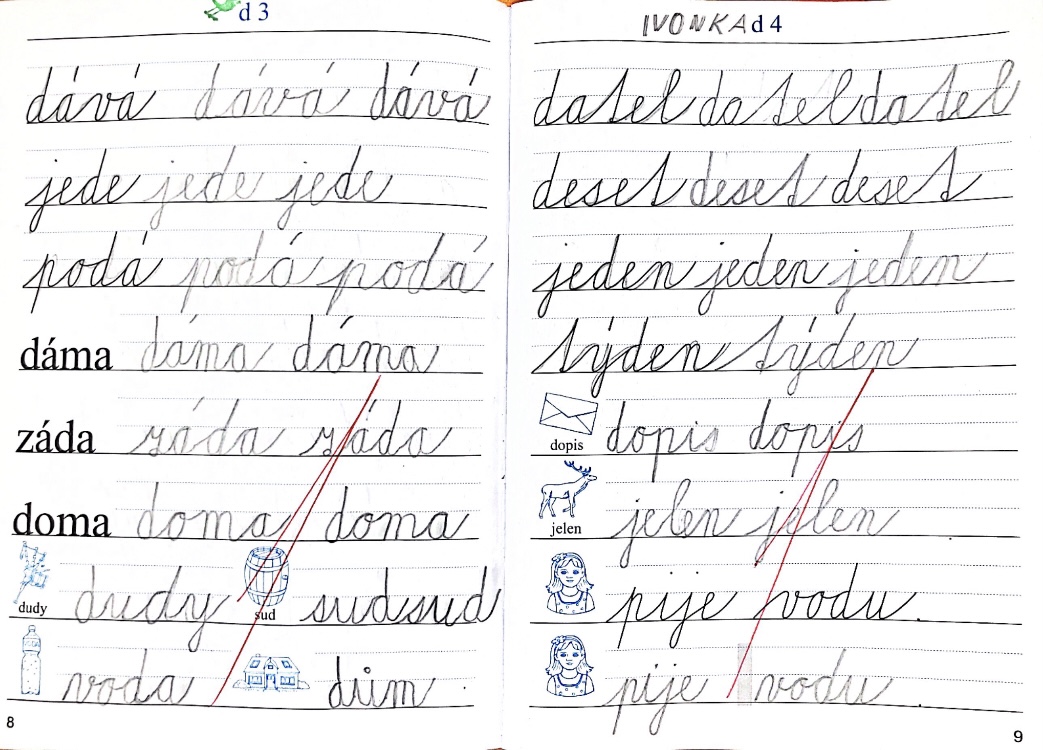 d 3
dává dává dává
jede jede jede
podá podá podá
dáma dáma dáma
záda záda záda
doma doma doma
dudy dudy sud sud sud
voda dům
8
IVONKA d 4
datel datel datel
deset deset deset
jeden jeden jeden
týden týden
dopis dopis dopis
jelen jelen jelen
pije vodu.
pije vodu.
9